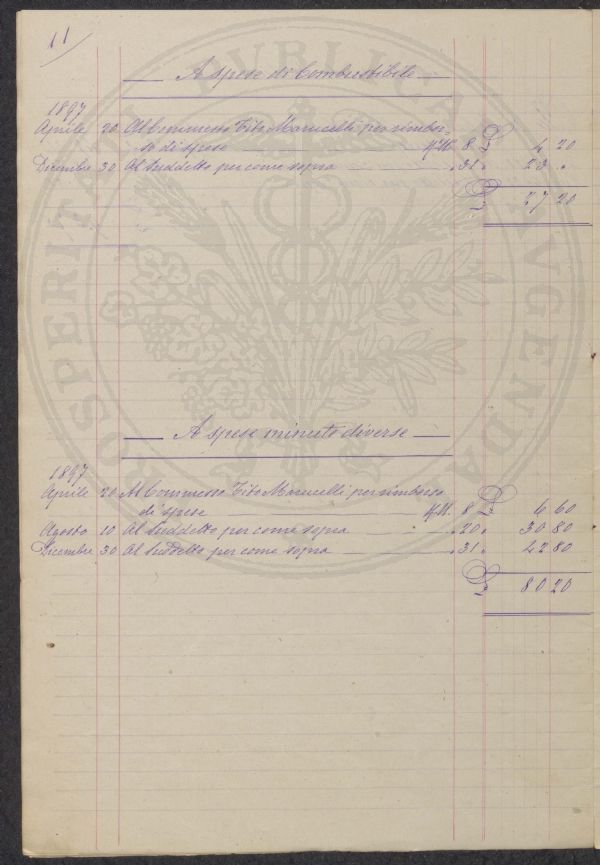 11
A spese di Combustibile
1897
Aprile 20 Al Commesso Tito Marucelli per rimbor-
so di spese 8 £ 4 20
Dicembre 30 Al Suddetto per come sopra " 31 " 23 "
£ 27 20
A spese minute diverse
1897
Aprile 20 Al Commesso Tito Marucelli per rimborso
di spese 8 £ 6 60
Agosto 10 Al Suddetto per come sopra " 20 " 30 80
Dicembre 30 Al Suddetto per come sopra " 31 " 42 80
£ 80 20
PROSPERITATI PVBLICAE AVGENDAE